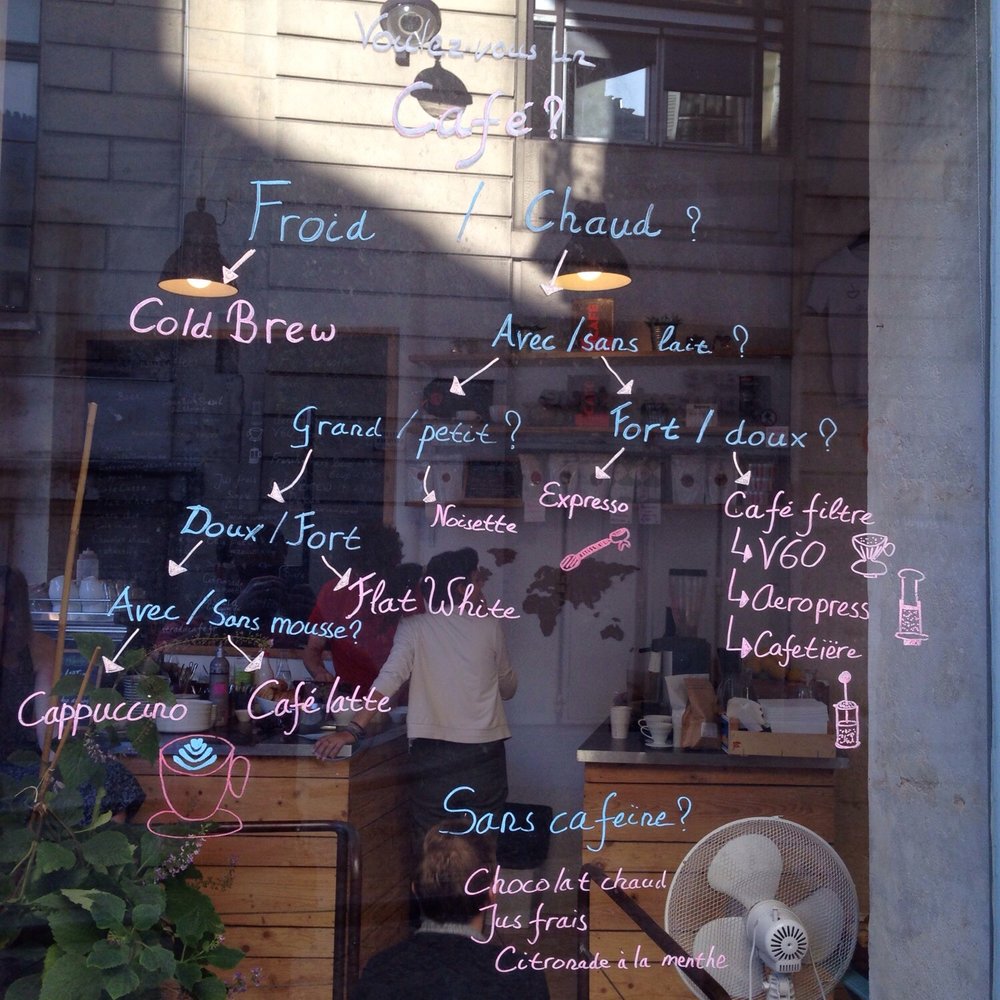 Voulez vous un
Café?
Froid / Chaud ?
Cold Brew
Avec / sans lait ?
Grand / petit ?
Fort / doux ?
Doux / Fort
Noisette
Expresso
Café filtre
V60
Aeropress
Cafetière
Flat White
Avec / Sans mousse?
Cappuccino
Café latte
Sans cafeine?
Chocolat chaud
Jus frais
Citronade à la menthe